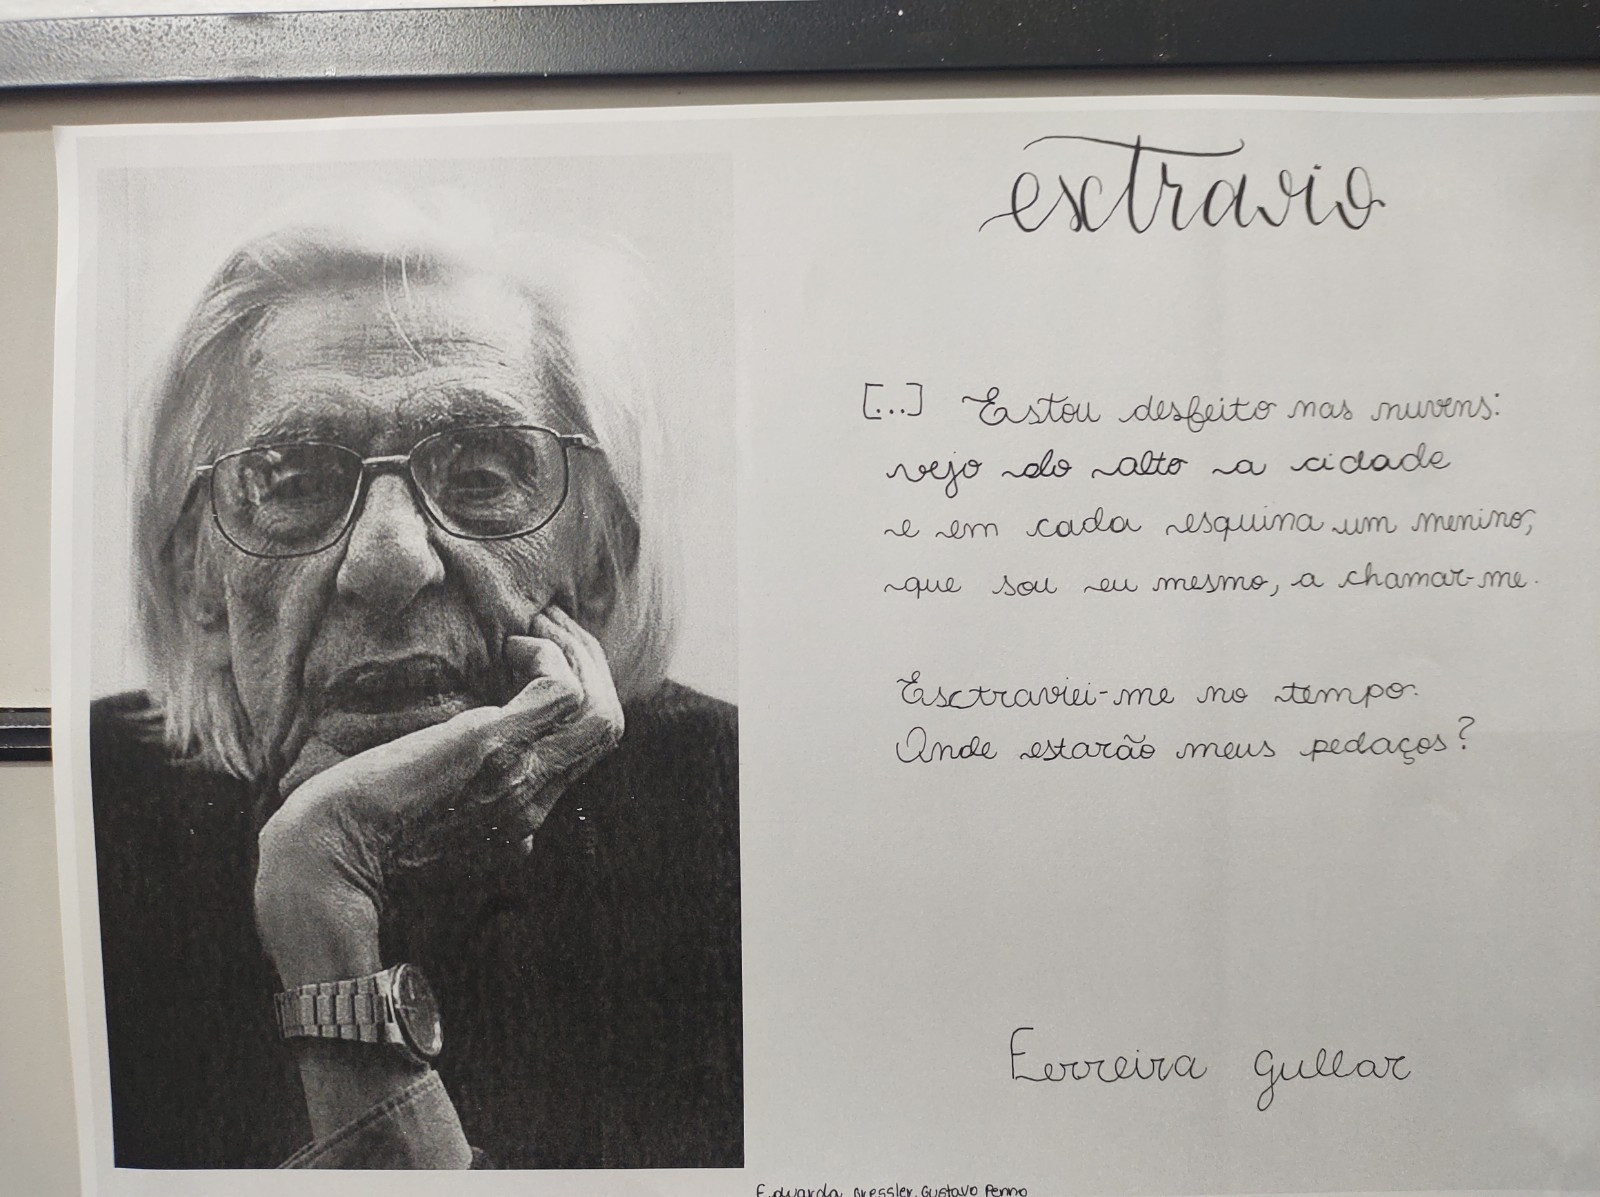 extravio
[...] Estou desfeito nas nuvens:
vejo do alto a cidade
e em cada esquina um menino,
que sou eu mesmo, a chamar-me.
Extraviei-me no tempo.
Onde estarão meus pedaços?
Ferreira Gullar
Eduarda Bressler, Gustavo Penno